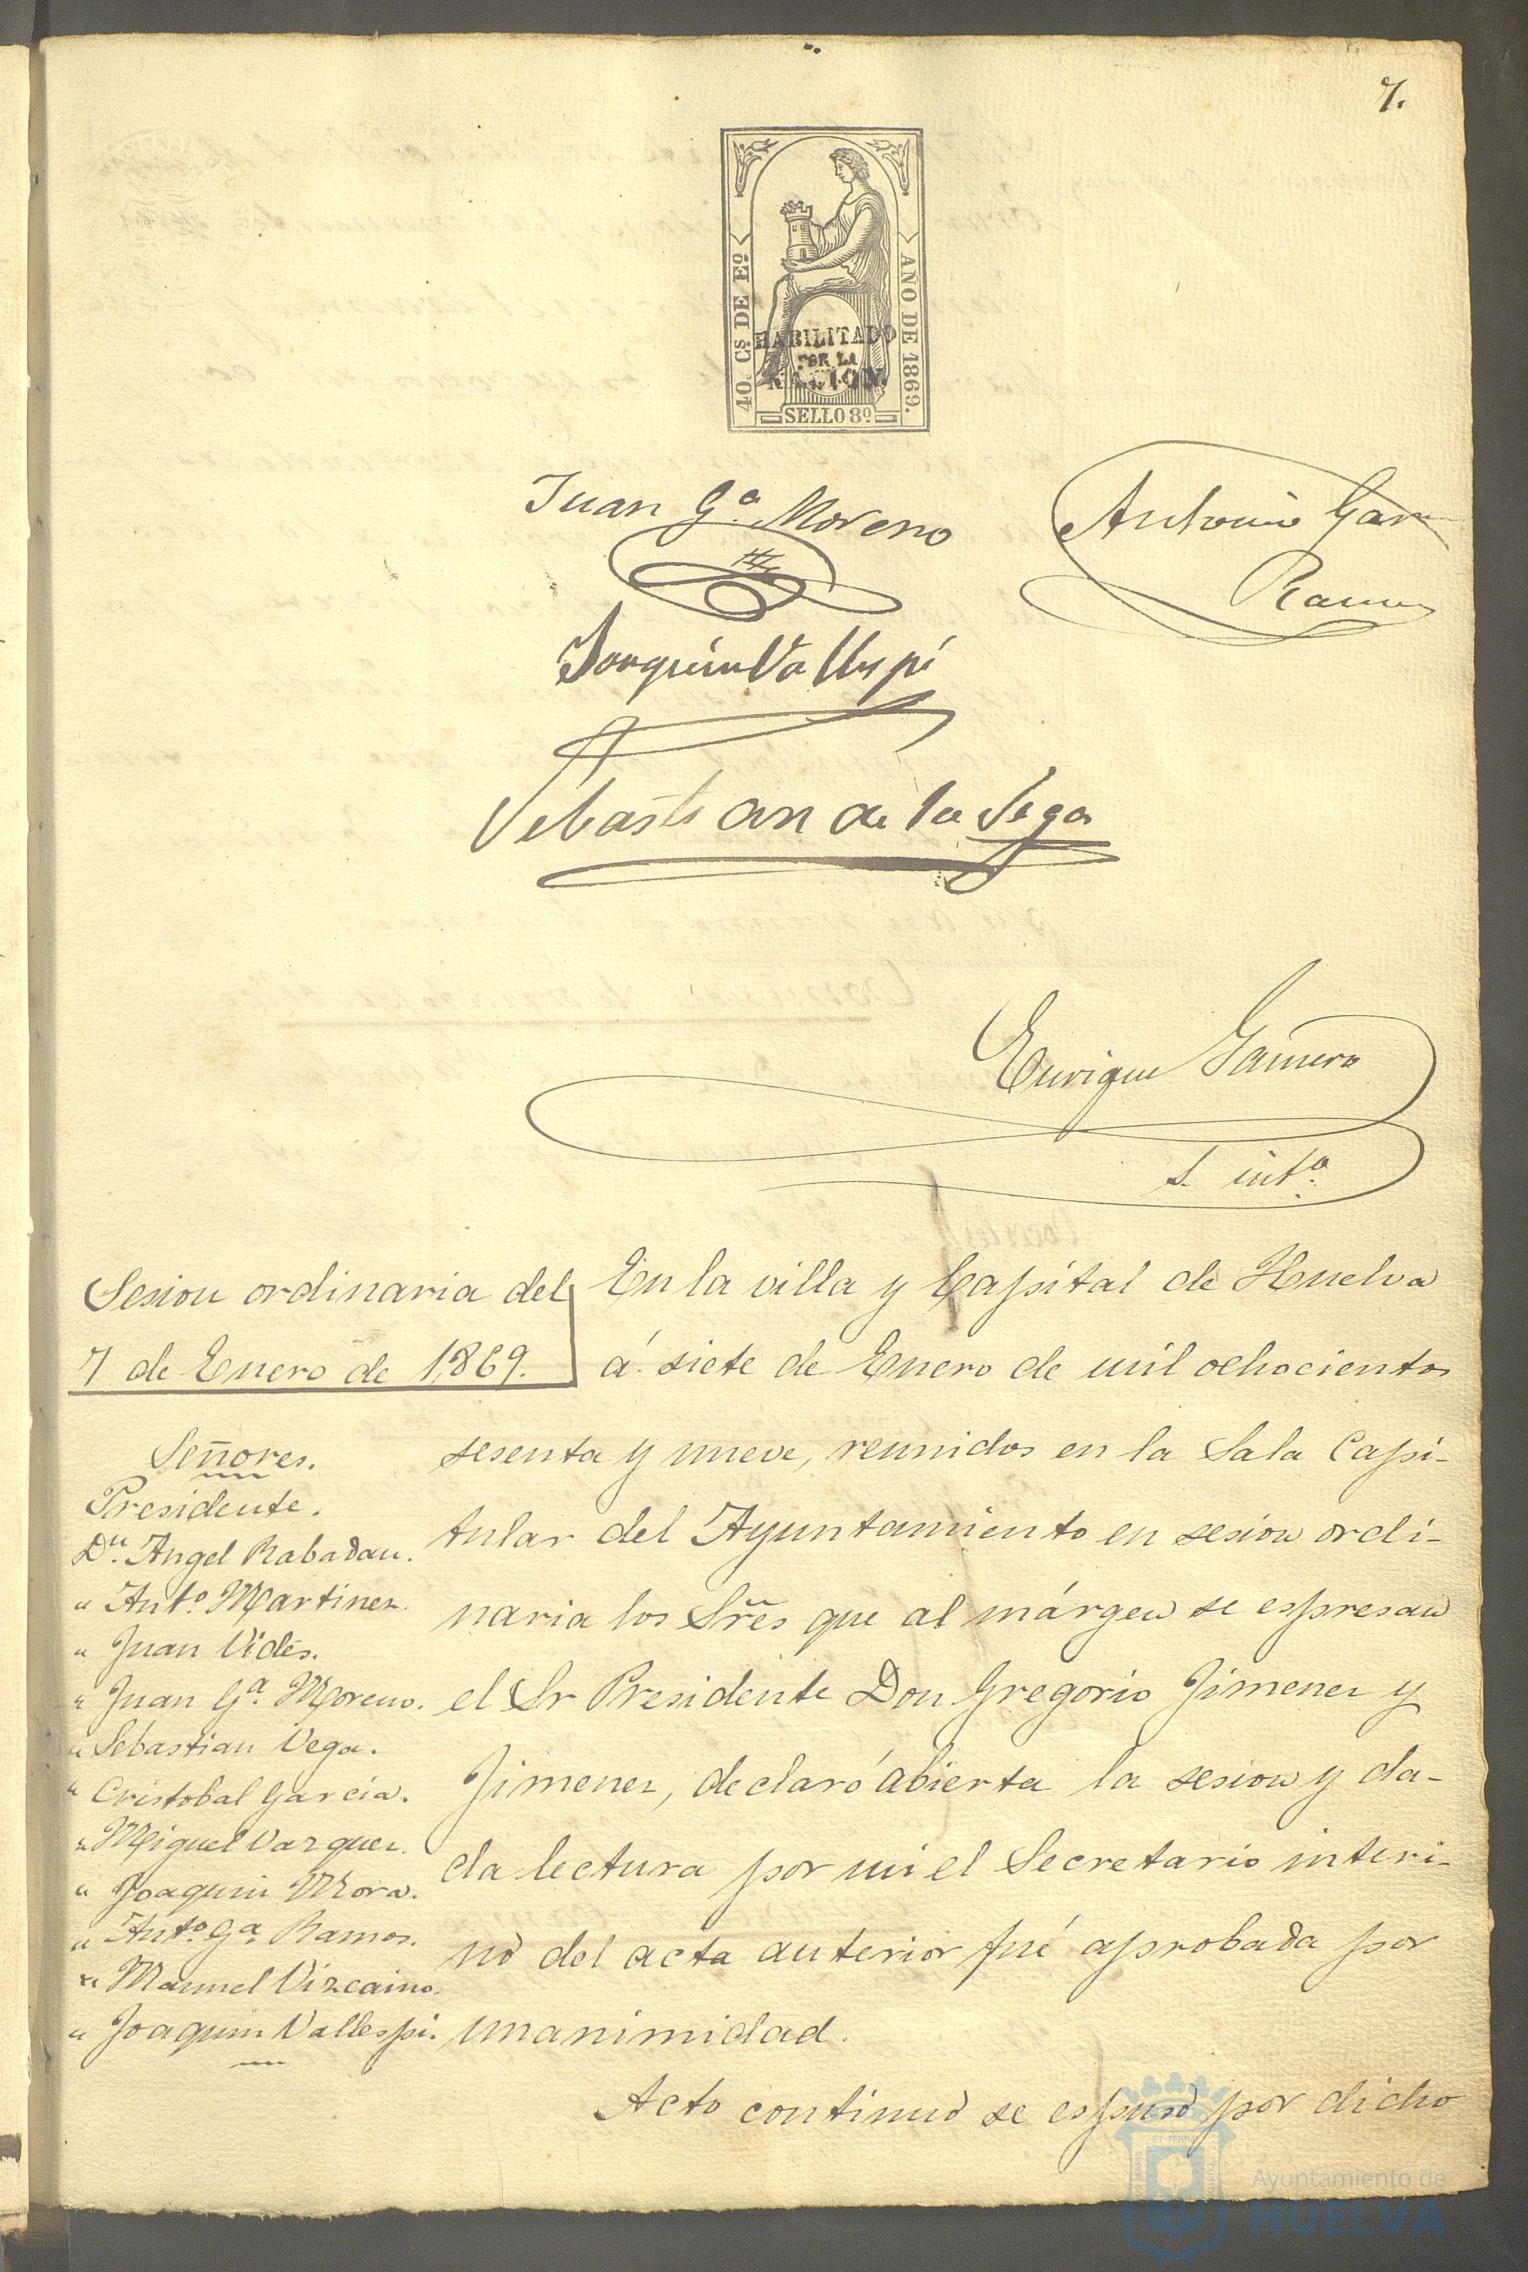 7.
40 Cs. DE Eº
AÑO DE 1869.
HABILITADO
POR LA
NACION.
SELLO 8º
Juan Gª. Moreno
Antonio Gar
Ramos
Joaquin Vallespí
Sebastian de la Vega
Enrique Gamero
S. intº.
Sesion ordinaria del
7 de Enero de 1,869.
Señores.
Presidente.
Dn. Angel Rabadan.
" Antº. Martinez.
" Juan Vides.
" Juan Gª. Moreno.
" Sebastian Vega.
" Cristobal Garcia.
" Miguel Vazquez.
" Joaquin Mora.
" Antº. Gª. Ramos.
" Manuel Vizcaino.
" Joaquin Vallespi.
En la villa y Capital de Huelva
á siete de Enero de mil ochocientos
sesenta y nueve, reunidos en la Sala Capi-
tular del Ayuntamiento en sesion ordi-
naria los Sres que al márgen se espresan
el Sr Presidente Don Gregorio Jimenez y
Jimenez, declaró abierta la sesion y da-
da lectura por mi el Secretario interi-
no del acta anterior fué aprobada por
unanimidad.
Acto continuo se espuso por dicho
Ayuntamiento de
HUELVA